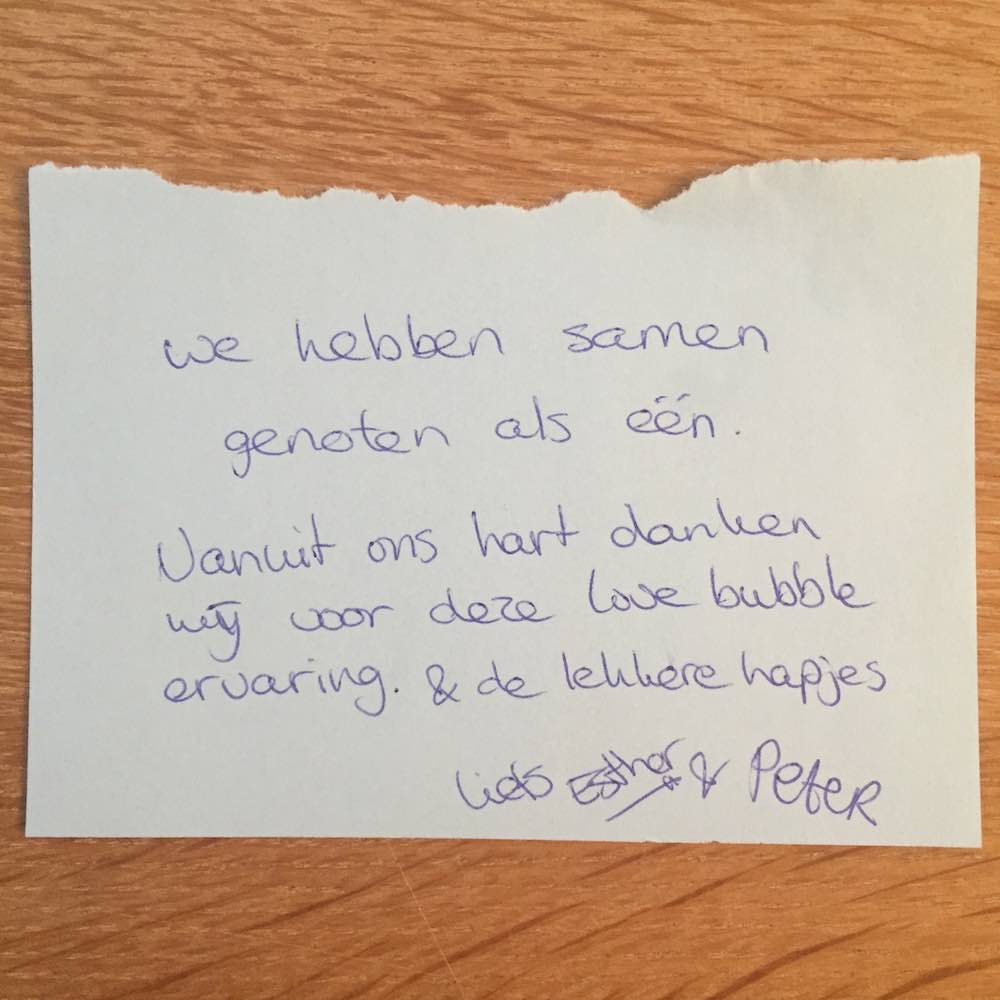 we hebben samen
genoten als één.
Vanuit ons hart danken
wij voor deze love bubble
ervaring. & de lekkere hapjes
Liefs Esther & Peter